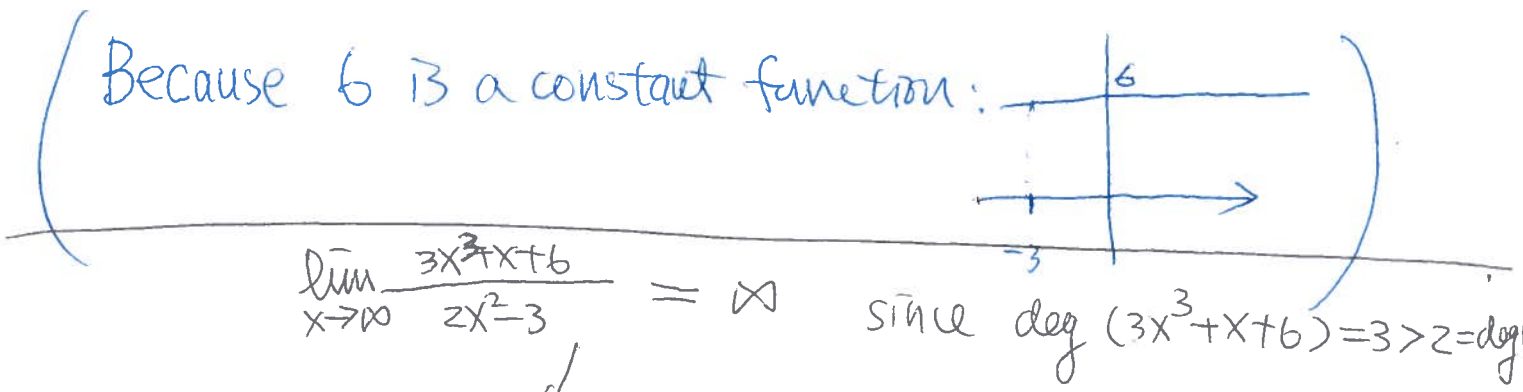 Because 6 is a constant function:
6
-3
lim x→∞ (3x³+x+6)/(2x²-3) = ∞ since deg (3x³+x+6)=3>2=deg